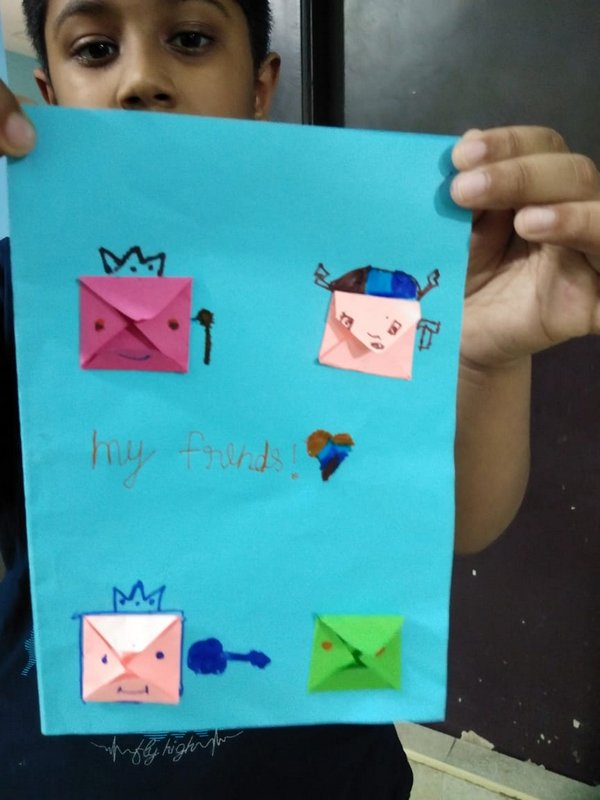 my frends!
fly high